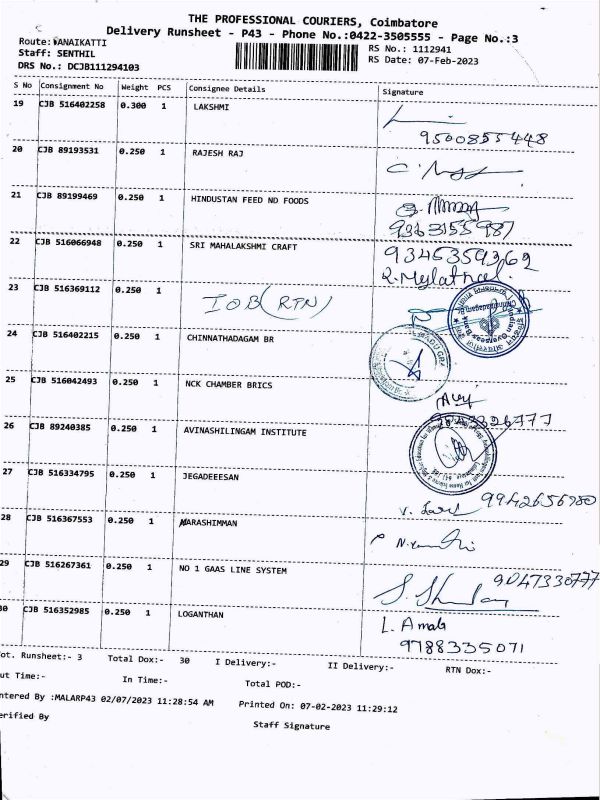 THE PROFESSIONAL COURIERS, Coimbatore
Delivery Runsheet - P43 - Phone No.:0422-3505555 - Page No.:3
Route: ANAIKATTI
Staff: SENTHIL
DRS No.: DCJB111294103
RS No.: 1112941
RS Date: 07-Feb-2023
S No Consignment No Weight PCS Consignee Details Signature
19 CJB 516402258 0.300 1 LAKSHMI
9500855448
20 CJB 89193531 0.250 1 RAJESH RAJ
21 CJB 89199469 0.250 1 HINDUSTAN FEED ND FOODS
22 CJB 516066948 0.250 1 SRI MAHALAKSHMI CRAFT
9345359362
23 CJB 516369112 0.250 1 IOB (RTN)
24 CJB 516402215 0.250 1 CHINNATHADAGAM BR
25 CJB 516042493 0.250 1 NCK CHAMBER BRICS
26 CJB 89240385 0.250 1 AVINASHILINGAM INSTITUTE
27 CJB 516334795 0.250 1 JEGADEEESAN
9942656980
28 CJB 516367553 0.250 1 NARASHIMMAN
29 CJB 516267361 0.250 1 NO 1 GAAS LINE SYSTEM
9047330777
30 CJB 516352985 0.250 1 LOGANTHAN
L. Amala
9788335071
ot. Runsheet:- 3 Total Dox:- 30 I Delivery:- II Delivery:- RTN Dox:-
ut Time:- In Time:- Total POD:-
ntered By :MALARP43 02/07/2023 11:28:54 AM Printed On: 07-02-2023 11:29:12
erified By Staff Signature